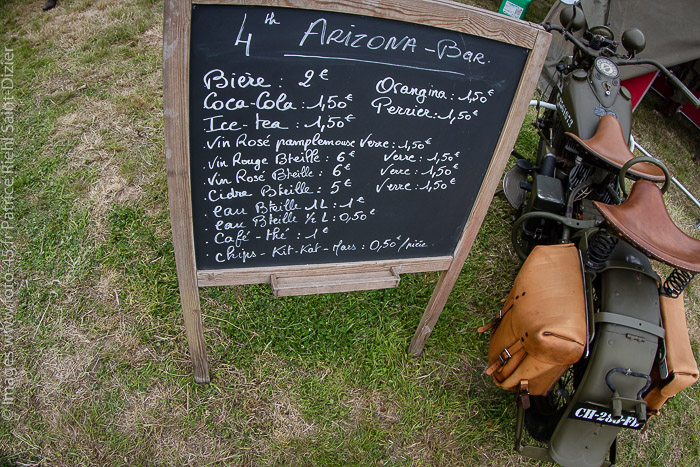 4th ARIZONA-BAR.
Bière : 2 €
Coca-Cola : 1,50
Ice-tea : 1,50
Orangina : 1,50
Perrier : 1,50
. Vin Rosé pamplemousse Verre : 1,50
. Vin Rouge Bteille : 6 € Verre : 1,50
. Vin Rosé Bteille : 6 € Verre : 1,50
. Cidre Bteille : 5 € Verre : 1,50
. eau Bteille 1L : 1 €
. eau Bteille ½ L : 0,50
. Café - thé : 1 €
. chips - Kit-Kat - Mars : 0,50 / pièce.
CH-283-FL
© Images www.foto-45.fr Patrice Riehl Saint-Dizier